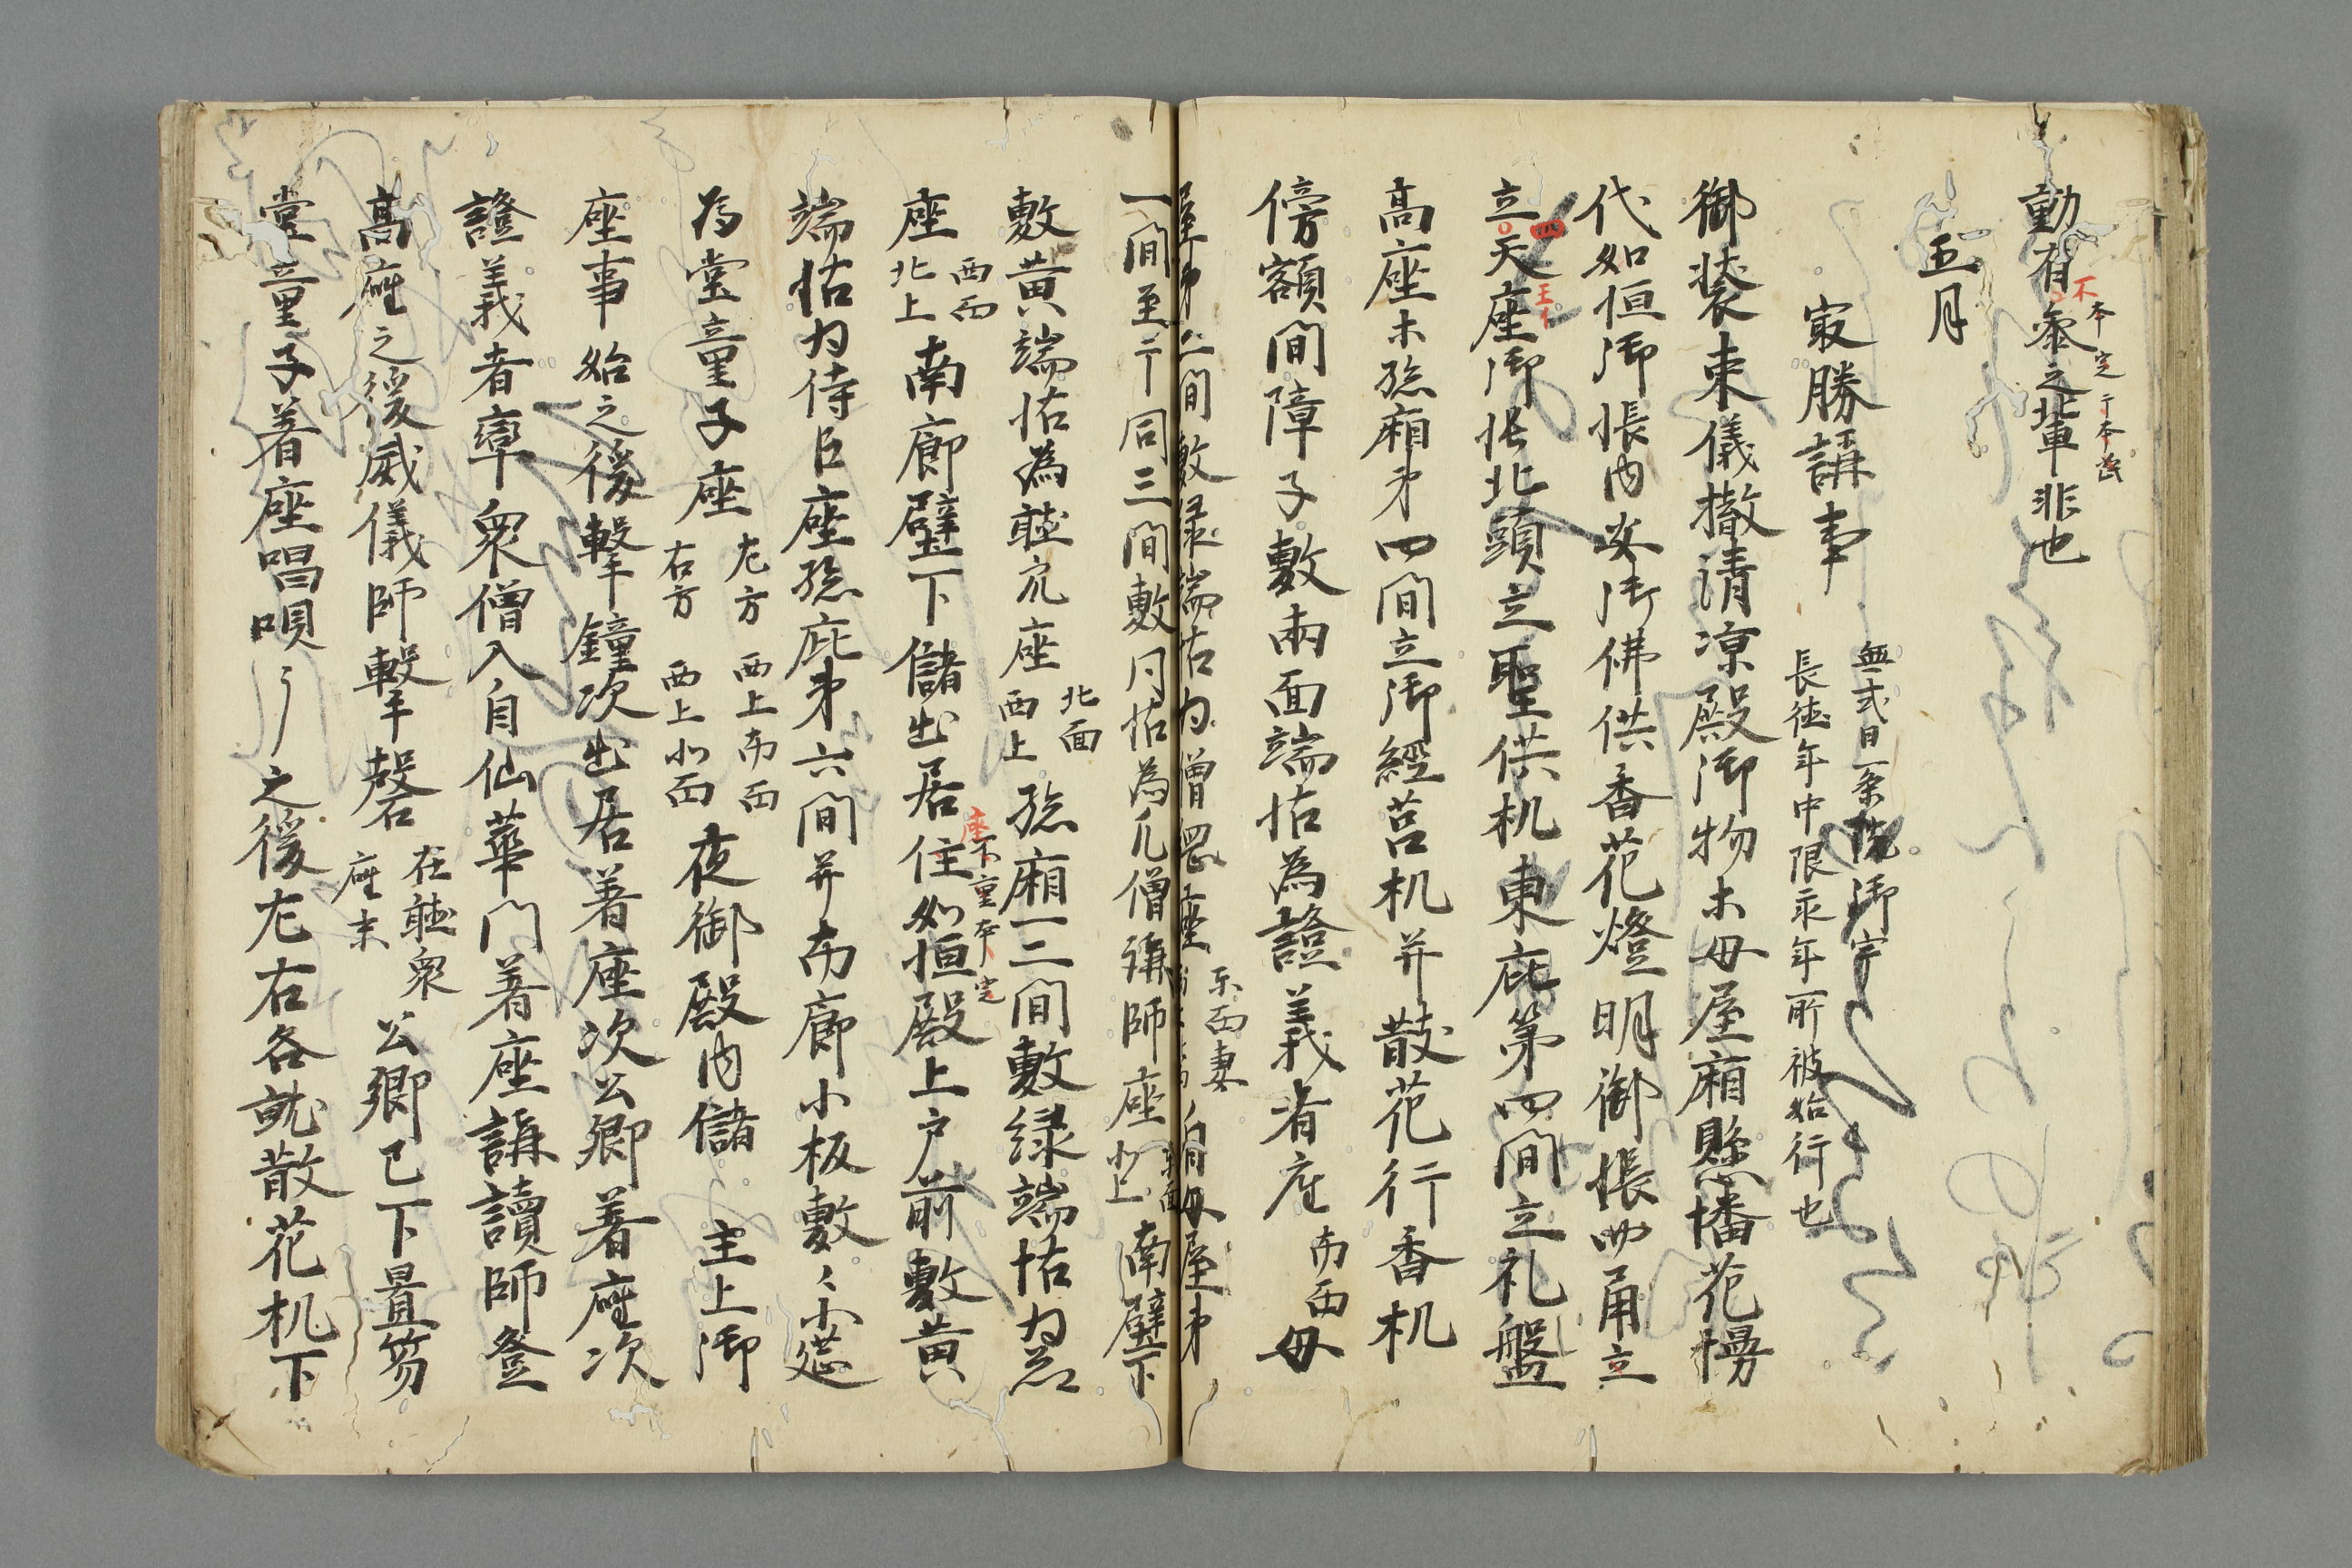 動有参之輩非也
不本定
五月
寂勝講事
無式日一条院御宇
長徳年中限永年所被始行也
御装束儀撤清凉殿御物木母屋廂懸幡花幔
代如恒御帳内安御佛供香花燈明御帳四角立
立天座御帳北頭立聖供机東庇第四間立礼盤
四
王
高座木孫廂弟四間立御經筥机并散花行香机
傍額間障子敷兩面端帖為證義者座
南面
母
屋弟二間敷緑端帖为僧綱座
東西妻
母屋弟
一間至于同三間敷同帖為凡僧講師座
北上
南壁下
敷黄端帖為聴衆座
北面
西上
孫廂一二間敷緑端帖为
座
西面
北上
南廊壁下儲出居住如恒殿上戸前敷黄
座本
端帖为侍臣座孫庇弟六間并南廊小板敷〻小莚
為堂童子座
左方 西上南面
右方 西上北面
夜御殿内儲 主上御
座事始之後撃鐘次出居着座次公卿着座次
證義者率衆僧入自仙華門着座講讀師登
高座之後威儀師撃磬
在聴衆
座末
公卿已下置笏
堂童子着座唄唱〻〻之後左右各就散花机下